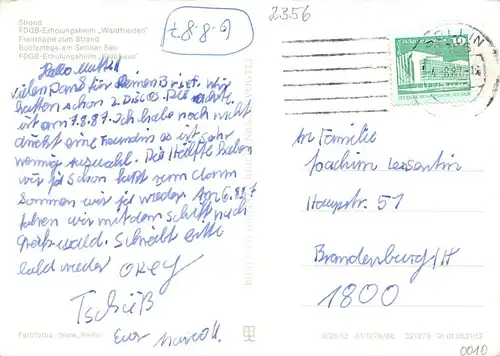 Strand
FDGB-Erholungsheim „Waldfrieden"
Freitreppe zum Strand
Bootsstege am Selliner See
FDGB-Erholungsheim
(9.8.8.7)
2356
SELLIN
Hallo Mutti
vielen Dank für Deinen Brief. Wir
hatten schon 2. Discos. Die nächste
ist am 7.8.87. Ich habe noch nicht
direkt eine Freundin es ist sehr
wenig Auzwahl. Die Hälfte haben
wir ja schon fast rum dann
kommen wir ja wieder. Am 6.8.87
fahren wir mit dem Schiff nach
Greifswald. Schreibt bitte
bald wieder OKEY
Tschüß
Euer
An Familie
Joachim
Hauptstr. 51
Brandenburg/H
1800
0010